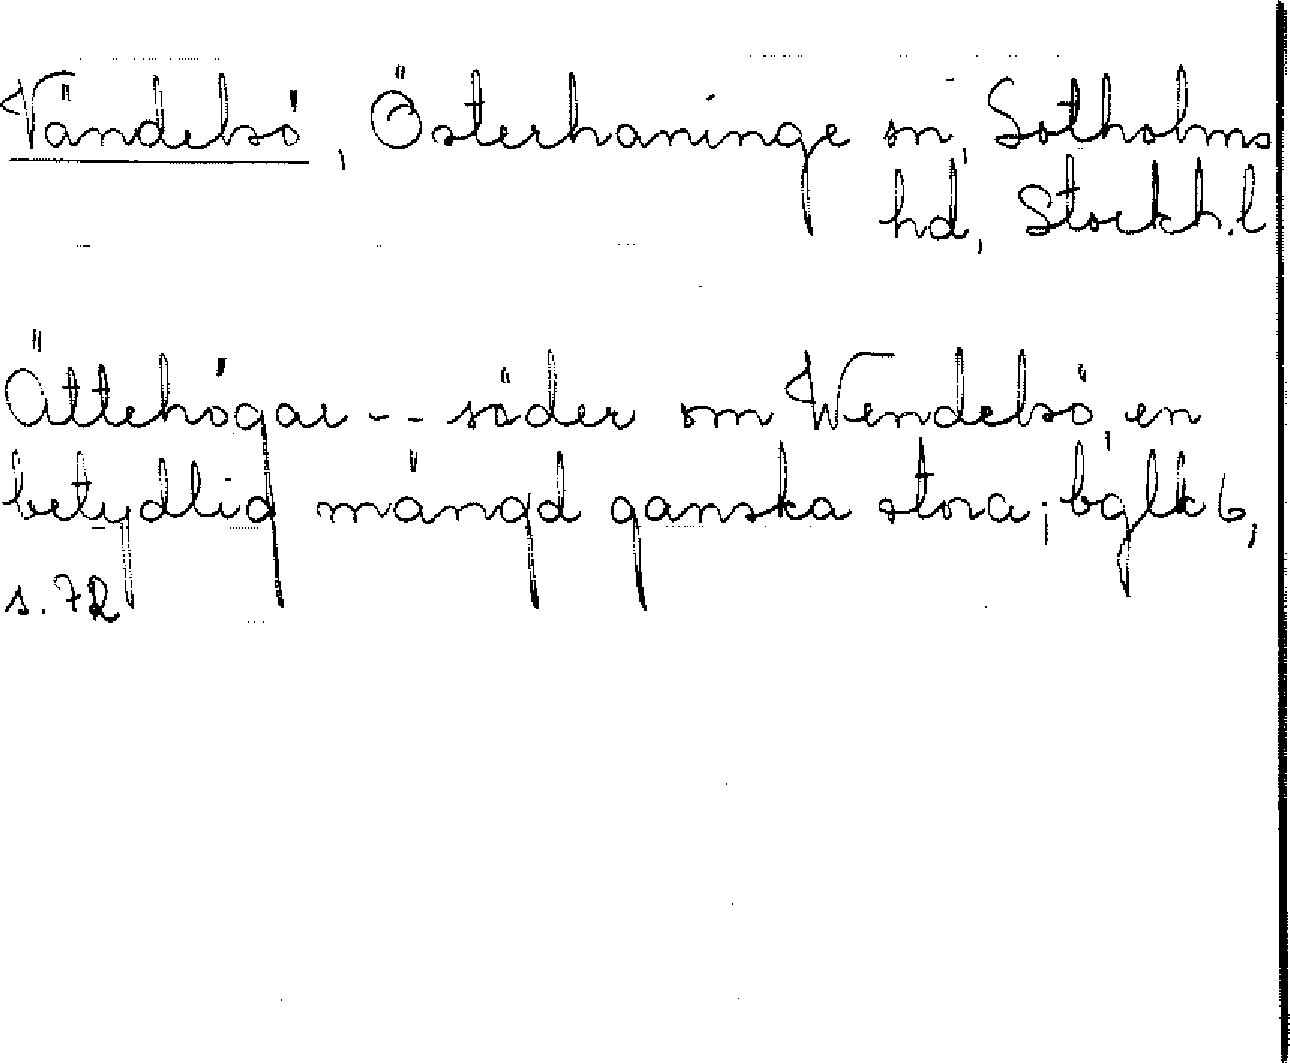 Vändelsö, Österhaninge sn, Sotholms
hd, Stockh. l
Ättehögar -- söder om Wendelsö, en
betydlig mängd ganska stora; bglk 6,
s. 72